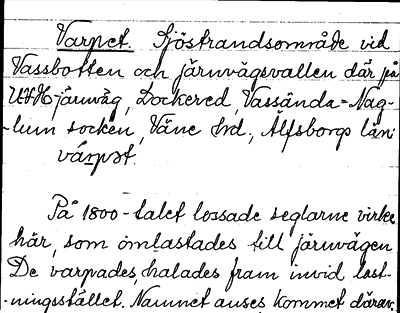 Varpet. Sjöstrandsområde vid
Vassbotten och järnvägsvallen där på
UVHJ järnväg, Dockered, Vassända=Nag-
-lum socken, Väne hrd., Älfsborgs län
várpət.
På 1800-talet lossade seglarne virke
här, som omlastades till järnvägen
De varpades, halades fram invid last-
-ningsstället. Namnet anses kommet därav.